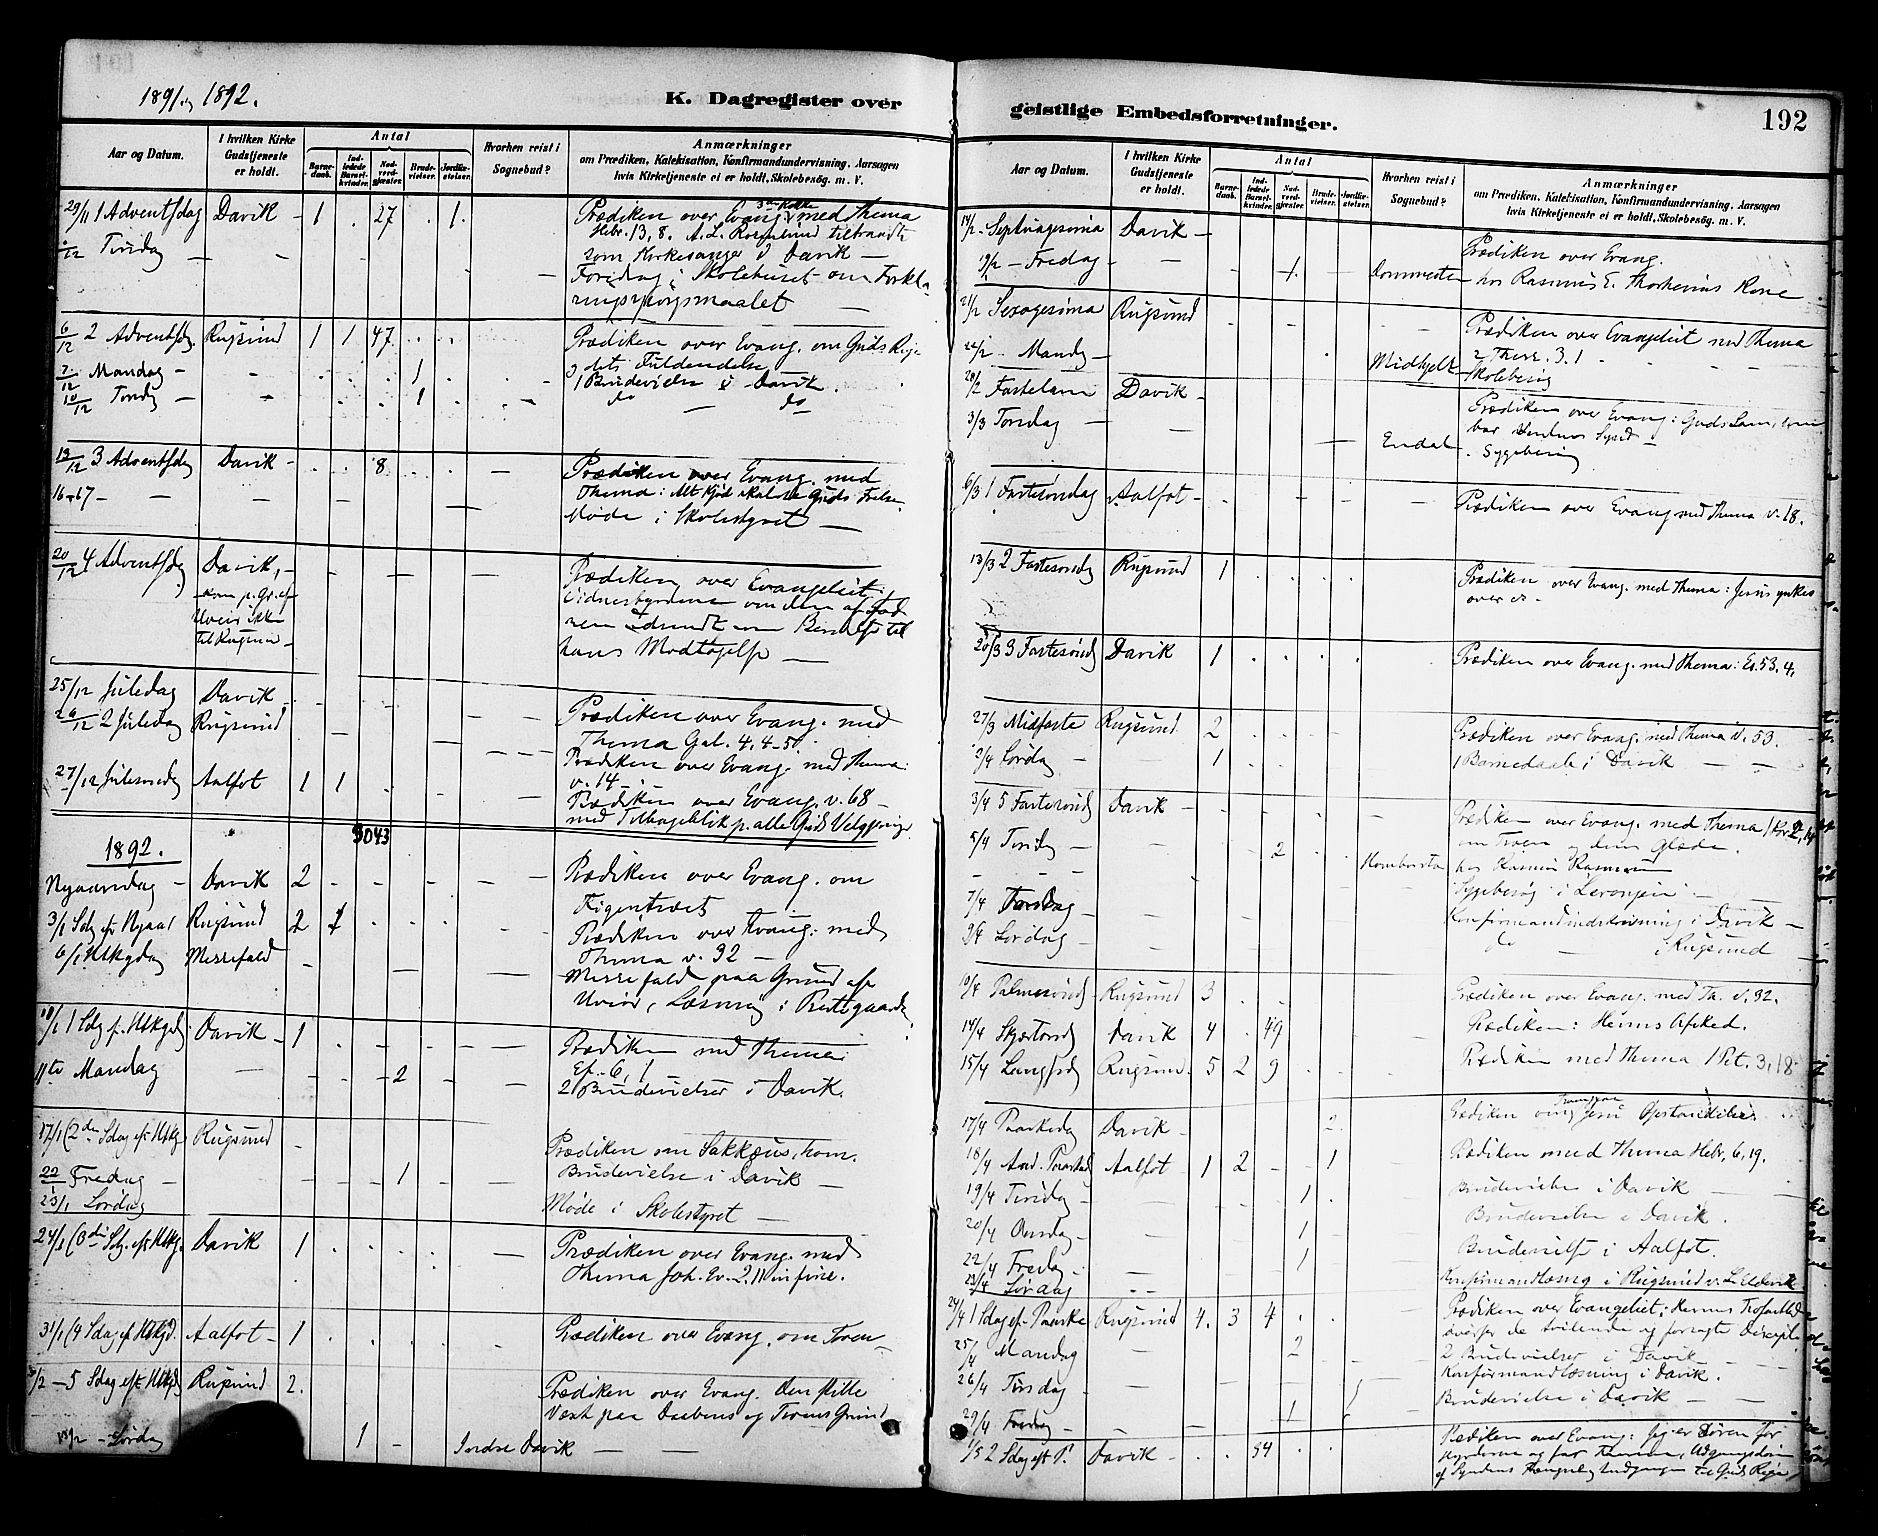 1891 og 1892.
K. Dagregister over
Aar og Datum.
I hvilken Kirke Gudstjeneste er holdt.
Antal
Barne-daab.
Ind-ledede Barsel-kvinder.
Nad-verd-gjæster.
Brude-vielser.
Jordfæ-stelser.
Hvorhen reist i Sognebud?
Anmærkninger
om Prædiken, Katekisation, Konfirmandundervisning, Aarsagen
hvis Kirketjeneste ei er holdt, Skolebesøg. m. V.
29/11 1 Adventsdag Davik 1 27 1. Prædiken over Evang. med Thema
Hebr. 13, 8. A. L. tiltraadte
/12 Tirsdag som Kirkesanger i Davik
Foredrag i Skolehuset om Forkla-
ringsspørgsmaalet
6/12 2 Adventsdg. Rugsund 1 1 47 Prædiken over Evang. om Guds Rige
dets Fuldendelse
7/12 Mandag 1 1 Brudevielse i Davik.
10/12 Torsdg 1 do do
13/12 3 Adventsdg Davik 8. Prædiken over Evang. med
Thema: Alt Kjød skal se Guds Frelse
16-17 Møde i Skolestyret
20/12 4 Adventsdg Davik, Prædiken over Evangeliet:
som p. Gr. af
Uveir ikke
til Rugsund
hans Modtagelse
25/12 Juledag Davik Prædiken over Evang. med
Thema Gal. 4, 4-5.
26/12 2 Juledag Rugsund Prædiken over Evang. med Thema:
v. 14
27/12 Julesøndg Aalfot 1 1 Prædiken over Evang. v. 68
med Tilbageblik p. alle Guds Velgjerninger
3043
1892.
Nyaarsdag Davik 2 Prædiken over Evang. om
Figentræet
3/1 Sdg ef. Nyaar Rugsund 2 1 Prædiken over Evang. med
Thema v. 32
6/1 Htkgdag Messefald Messefald paa Grund af
Uveir, Læsning i Præstgaarde
10/1 1 Sdg ef. Htkgdg Davik 1 Prædiken med Thema:
Ef. 6, 1
11te Mandag 2 2 Brudevielser i Davik.
17/1 (2den Sdag eft Htkg Rugsund Prædiken om Sakkæus, hom.
22/1 Fredag 1 Brudevielse i Davik
23/1 Lørdag Møde i Skolestyret
24/1 (3die Sdg. eft Htkg. Davik 1 Prædiken over Evang. med
Thema Joh. Ev. 2. 11 in fine.
31/1 (4 Sdag ef. Htkgd. Aalfot 1 Prædiken over Evang. om Troen
/2 5 Sdag eft Htkgd Rugsund 2. Prædiken over Evang. Den stille
Vext paa Daabens og Troens Grund
13/2 Lørdag 1 Indre Davik
geistlige Embedsforretninger.
192
Aar og Datum.
I hvilken Kirke Gudstjeneste er holdt.
Antal
Barne-daab.
Ind-ledede Barsel-kvinder.
Nad-verd-gjæster.
Brude-vielser.
Jordfæ-stelser.
Hvorhen reist i Sognebud?
Anmærkninger
om Prædiken, Katekisation, Konfirmandundervisning, Aarsagen
hvis Kirketjeneste ei er holdt, Skolebesøg. m. V.
14/2 Septuagesima Davik Prædiken over Evang.
19/2 Fredag 1. hos Rasmus E.
21/2 Sexagesima Rugsund Prædiken over Evangeliet med Thema
2 Thess. 3. 1
22/2 Mandg Midhjelt Skolebesøg
28/2 Fastelavn Davik Prædiken over Evang: Guds Lam, som
bar Verdens Synd
3/3 Torsdag Endal Sygebesøg
6/3 1 Fastesøndag Aalfot Prædiken over Evang med Thema v. 18.
13/3 2 Fastesøndg Rugsund 1 Prædiken over Evang. med Thema: Jesus ynkes
over os
20/3 3 Fastesøndg Davik 1 Prædiken over Evang. med Thema: Es. 53, 4,
27/3 Midfaste Rugsund 2 Prædiken over Evang. med Thema v. 53.
2/4 Lørdag 1 1 Barnedaab i Davik
3/4 5 Fastesøndg Davik Prædiken over Evang. med Thema
om Troen og dens Glæde.
5/4 Tirsdag 2 Homborstad hos Rasmus Rasmussen
Sygebesøg i
7/4 Torsdag Konfirmandindskrivning i Davik
9/4 Lørdag do i Rugsund
10/4 Palmesøndg Rugsund 3 Prædiken over Evang. med Th. v. 32.
14/4 Skjærtorsdg Davik 4 49 Prædiken: Herrens Afsked.
15/4 Langfrdg Rugsund 5 2 9 Prædiken med Thema 1 Pet. 3, 18
17/4 Paaskedg Davik 2. Prædiken om Jesu Opstandelse
18/4 And. Paaskdg Aalfot 1 2 1 Prædiken med Thema Hebr. 6, 19.
19/4 Tirsdag 1 Brudevielse i Davik
20/4 Onsdag 1 Brudevielse i Davik.
22/4 Fredag 1 Brudevielse i Aalfot.
23/4 Lørdag Konfirmantlæsng i Rugsund
24/4 1 Sdag ef. Paaske Rugsund 4. 3 4 Prædiken over Evangeliet: Herrens Trofasthed
overfor de tvilende og forsagte Disciple
25/4 Mandag 2 2 Brudevielser i Davik
26/4 Tirsdag Konfirmandlæsning i Davik.
29/4 Fredag 1 Brudevielse i Davik
1/5 2 Sdag eft P. Davik 54 Prædiken over Evang: Jeg er Døren for
Hyrderne og for Faarene, Udgangsdøren
af Syndens Fængsel og Indgangen til Guds Rige